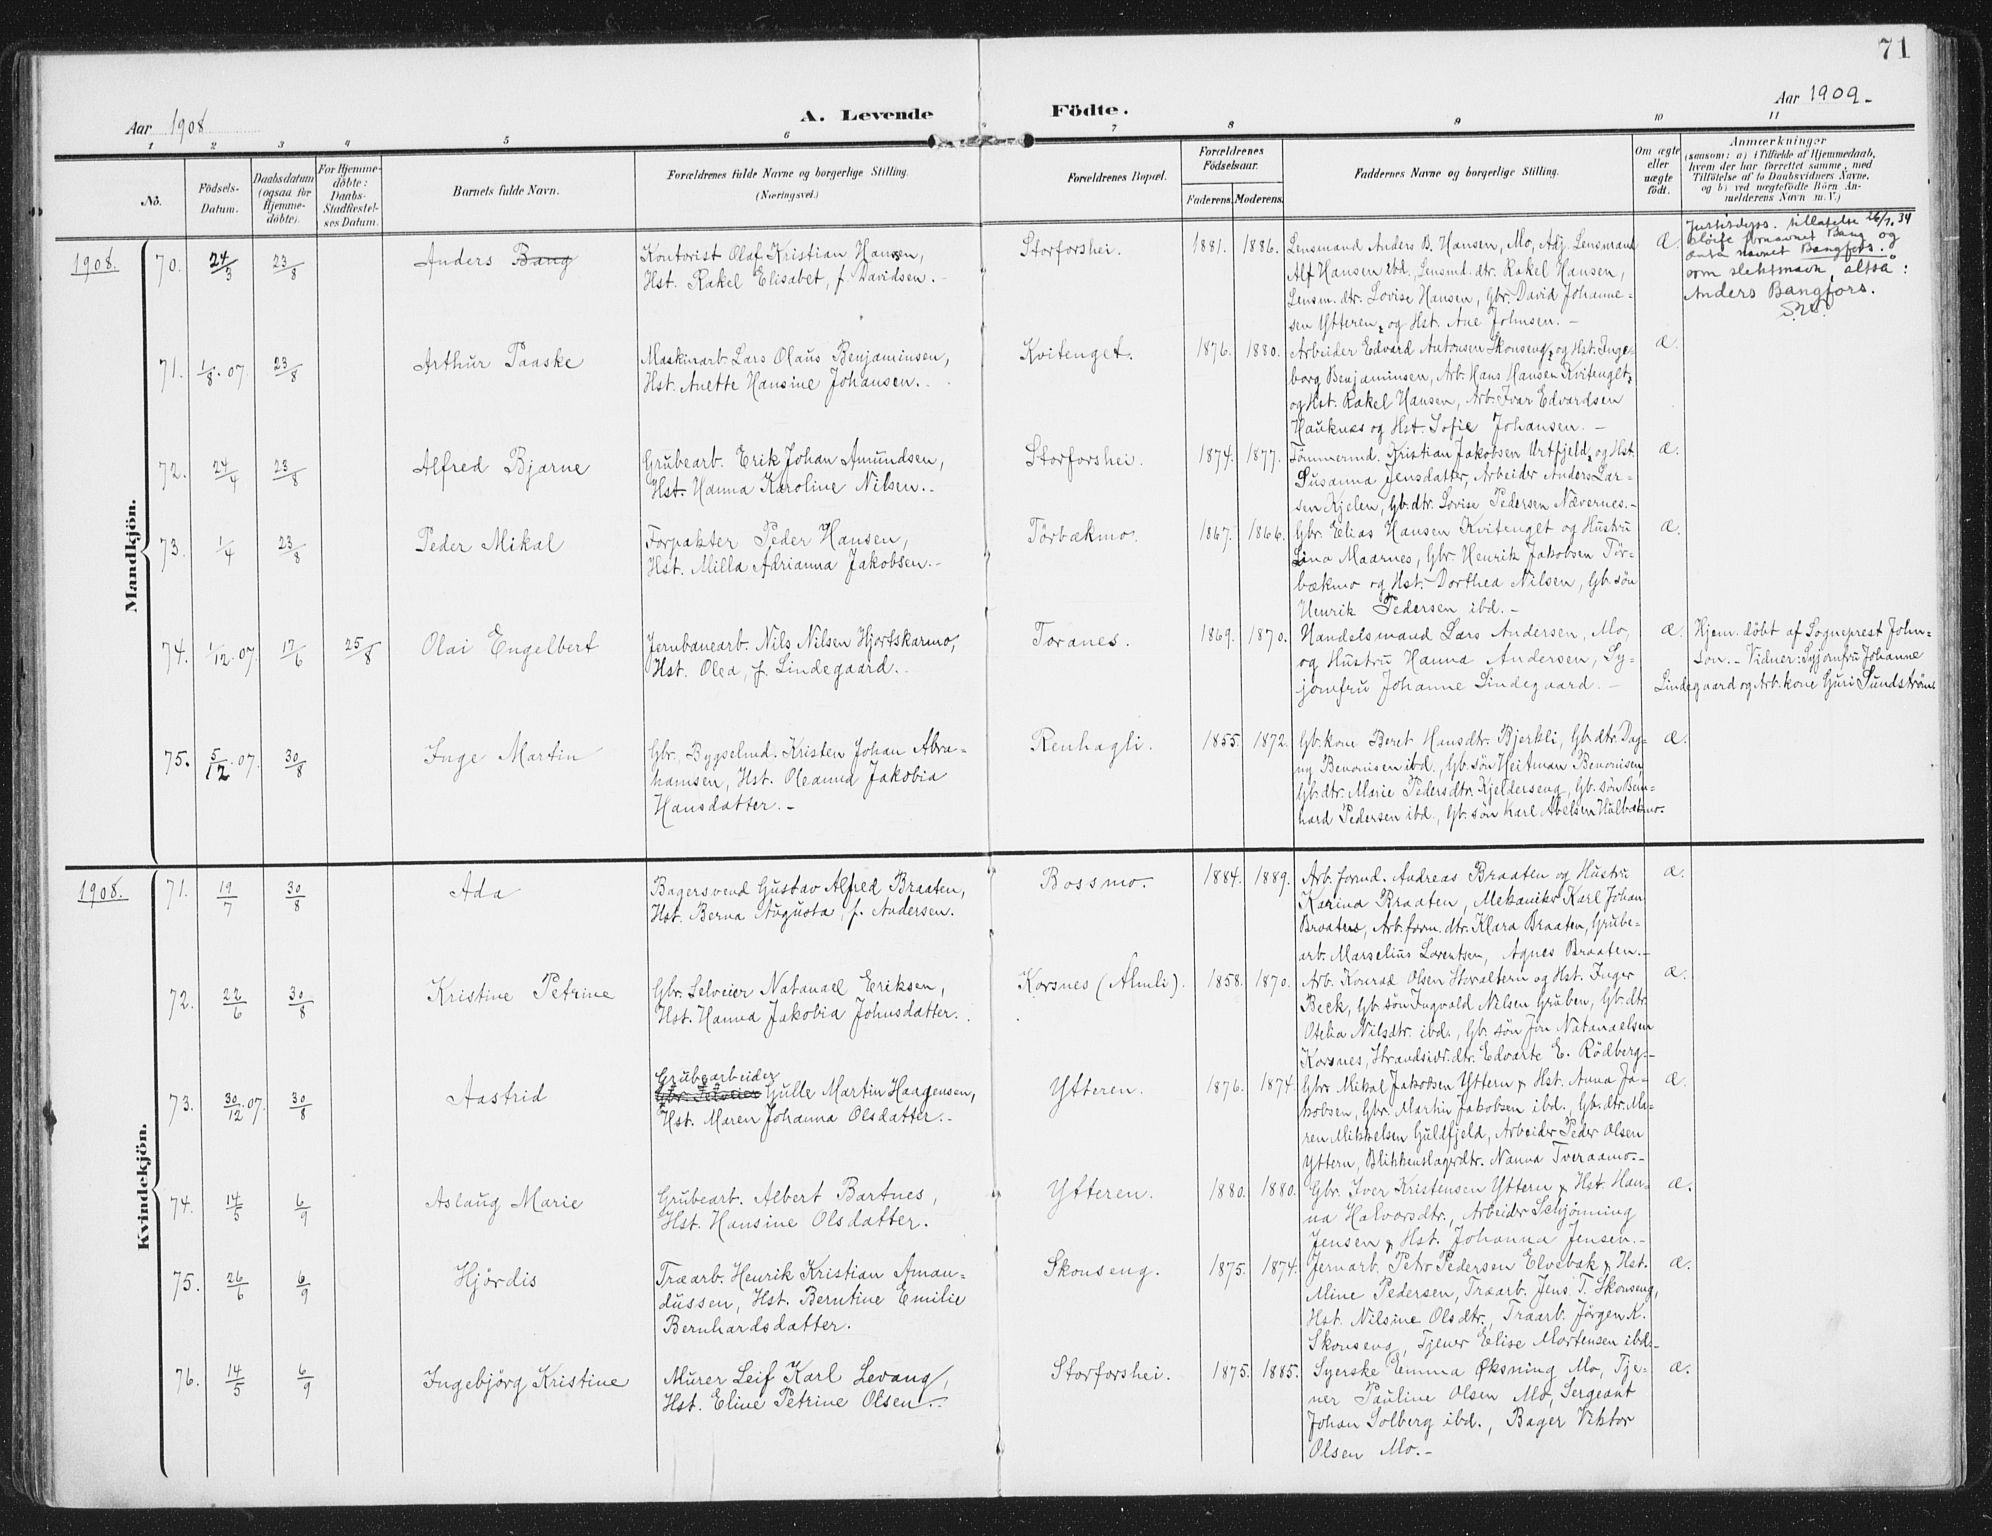 71
Aar 1908
A. Levende
Födte.
Aar 1909.
1 2 3 4 5 6 7 8 9 10 11
No.
Födsels-
Datum.
Daabsdatum
(ogsaa for
Hjemme-
döbte).
For Hjemme-
döbte:
Daabs-
Stadfæstel-
ses Datum.
Barnets fulde Navn.
Forældrenes fulde Navne og borgerlige Stilling.
(Næringsvei.)
Forældrenes Bopæl.
Forældrenes
Födselsaar.
Faderens. Moderens.
Faddernes Navne og borgerlige Stilling.
Om ægte
eller
uægte
födt.
Anmærkninger
(saasom: a) i Tilfælde af Hjemmedaab,
hvem der har forrettet samme, med
Tilföielse af to Daabsvidners Navne,
og b) ved uægtefödte Börn An-
melderens Navn m. V.)
Mandkjön.
1908. 70. 24/3 23/8 Anders Bang
Kontorist Olaf Kristian Hansen,
Hst. Rakel Elisabet, f. Davidsen.-
Storforshei. 1881. 1886.
Lensmand Anders B. Hansen, Mo, Adj. Lensmand
Alf Hansen ibd., Lensmd. dtr. Rakel Hansen,
Lensm. dtr. Lovise Hansen, Gbr. David Johanne-
sen Ytteren, og Hst. Ane Johnsen.-
Æ.
Justisdeps. tillatelse 26/7.34
sløife fornavnet Bang og
anta navnet Bangfors.
som slektsnavn, altså:
Anders Bangfors.
71. 1/8.07 23/8 Arthur Paaske
Maskinarb. Lars Olaus Benjaminsen,
Hst. Anette Hansine Johansen.
Kvitenget. 1876. 1880.
Arbeider Edvard Antonsen Skonseng, og Hst. Inge-
borg Benjaminsen, Arb. Hans Hansen Kvitenget,
og Hst. Rakel Hansen, Arb. Ivar Edvardsen
Hauknes og Hst. Sofie Johansen.-
Æ.
72. 24/4 23/8 Alfred Bjarne
Grubearb. Erik Johan Amundsen,
Hst. Hanna Karoline Nilsen.-
Storforshei. 1874. 1877.
Tömmermd. Kristian Jakobsen Urtfjeld, og Hst.
Susanna Jensdatter, Arbeider Anders Lar-
sen Kjelen, Gb. dtr. Lovise Pedersen Nævernes.-
Æ.
73. 1/4 23/8 Peder Mikal
Forpakter Peder Hansen,
Hst. Milla Adrianna Jakobsen.-
Törbækmo. 1867. 1866.
Gbr. Elias Hansen Kvitenget og Hustru
Lina Maarnes, Gbr. Henrik Jakobsen Tör-
bækmo og Hst. Dorthea Nilsen, Gb. sön
Henrik Pedersen ibd.-
Æ.
74. 1/12.07. 17/6 25/8 Olai Engelbert
Jernbanearb. Nils Nilsen Hjortskarmo,
Hst. Olea, f. Lindegaard.
Toranes. 1869. 1870.
Handelsmand Lars Andersen, Mo,
og Hustru Hanna Andersen, Sy-
jomfru Johanne Lindegaard.-
Æ.
Hjem. döbt af Sogneprest John-
son.- Vidner: Syjomfru Johanne
Lindegaard og Arb. kone Guri Sundström
75. 5/12.07. 30/8 Inge Martin
Gbr., Bygselmd. Kristen Johan Abra-
hamsen, Hst. Oleanna Jakobia
Hansdatter.-
Renhagli. 1855. 1872.
Gb. kone Beret Hansdtr. Bjerkli, Gb. dtr. Dag-
ny Benonisen ibd., Gb. sön Heitman Benonisen,
Gb. dtr. Marie Pedersdtr. Kjelderseng, Gb. sön Bern-
hard Pedersen ibd., Gb. sön Karl Abelsen Hulbækmo.
Æ.
Kvindekjön.
1908. 71. 19/7 30/8 Ada
Bagersvend Gustav Alfred Braaten,
Hst. Berna Augusta, f. Andersen.
Bossmo. 1884. 1889.
Arb. formd. Andreas Braaten og Hustru
Karina Braaten, Mekaniker Karl Johan
Braaten, Arb. form. dtr. Klara Braaten, Grube-
arb. Marselius Lorentsen, Agnes Braaten.-
Æ.
72. 22/6 30/8 Kristine Petrine
Gbr. Selveier Natanael Eriksen,
Hst. Hanna Jakobia Johnsdatter.
Korsnes (Almli). 1858. 1870.
Arb. Konrad Olsen Storaltern og Hst. Inger
Beck, Gb. sön Ingvald Nilsen Gruben, Gb. dtr.
Otelia Nilsdtr. ibd., Gb. sön Jon Natanaelsen
Korsnes, Strandsidr. dtr. Edvarte E. Rödberg.-
Æ.
73. 30/12.07. 30/8 Aastrid
Grubearbeider
Gbr. Selveier Gulle Martin Haagensen,
Hst. Maren Johanna Olsdatter.-
Ytteren. 1876. 1874.
Gbr. Mikal Jakobsen Yttern & Hst. Anna Ja-
kobsen, Gbr. Martin Jakobsen ibd., Gb. dtr. Ma-
ren Mikkelsen Guldfjeld, Arbeider Peder Olsen
Yttern, Blikkenslagerdtr. Nanna Tveraamo.-
Æ.
74. 14/5 6/9 Aslaug Marie
Grubearb. Albert Bartnes,
Hst. Hansine Olsdatter.
Ytteren. 1880. 1880.
Gbr. Iver Kristensen Yttern & Hst. Han-
na Halvorsdtr., Arbeider Schjönning
Jensen & Hst. Johanna Jensen.-
Æ.
75. 26/6 6/9 Hjördis
Træarb. Henrik Kristian Aman-
dussen, Hst. Berntine Emilie
Bernhardsdatter.
Skonseng. 1875. 1874.
Jernarb. Petr Pedersen Elvebak & Hst.
Aline Pedersen, Træarb. Jens T. Skonseng,
Hst. Nilsine Olsdtr., Træarb. Jörgen K.
Skonseng, Tjener Elise Mortensen ibd.-
Æ.
76. 14/5 6/9 Ingebjörg Kristine
Murer Leif Karl Levang,
Hst. Eline Petrine Olsen.-
Storforshei. 1875. 1885.
Syerske Emma Øksning Mo, Tje-
ner Pauline Olsen Mo, Sergeant
Johan Solberg ibd., Bager Viktor
Olsen Mo.-
Æ.